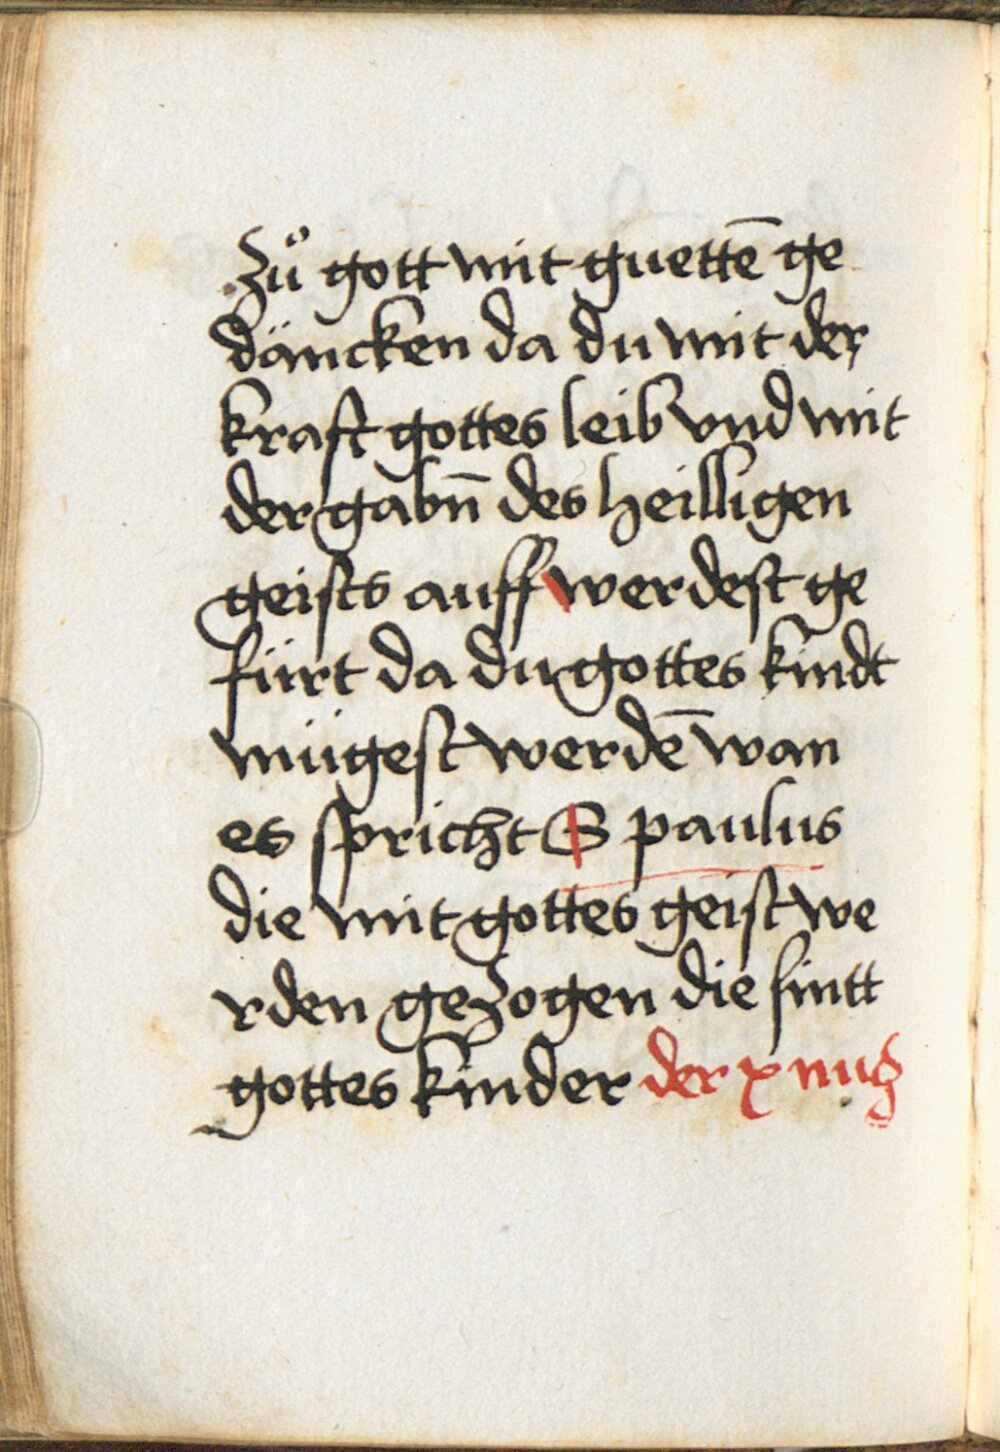 Zů gott mit guettē ge
däncken da du mit der
kraft gottes leib vnd mit
der gabn̄ des heilligen
geists auff werdest ge
fürt da du gottes kindt
mügest werdē wan
es spricht S paulus
die mit gottes geist we
rden gezogen die sintt
gottes kinder der x nuͦtz